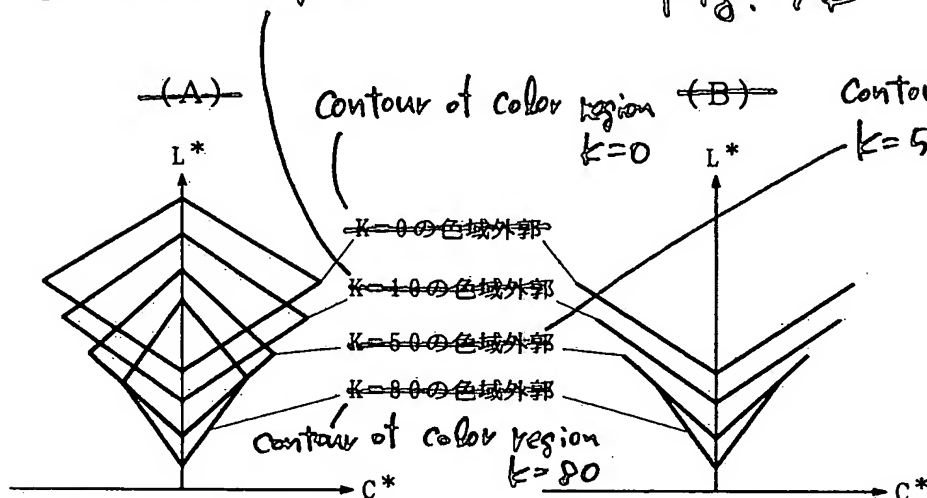 (A)
(B)
Contour of color region
k=0
Contou
k=5
L*
L*
K=0の色域外郭
K=10の色域外郭
K=50の色域外郭
K=80の色域外郭
Contour of color region
k=80
C*
C*